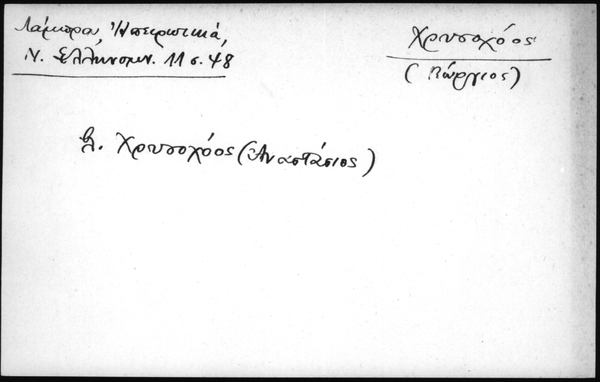 Λάμπρου, Ἠπειρωτικά,
Ν. Ἑλληνομν. 11 σ. 48
Χρυσοχόος
(Γιώργιος)
βλ. Χρυσοχόος (Ἀναστάσιος)